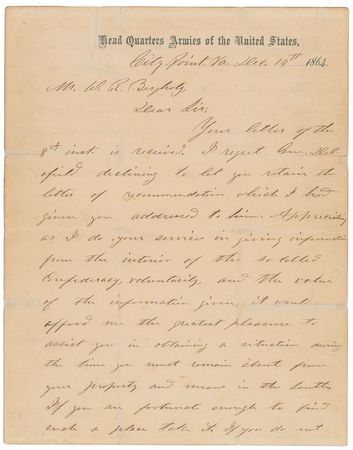 Head Quarters Armies of the United States,
City Point, Va. Dec. 14th 1864.
Mr. W. R.
Dear Sir:
Your letter of the
8th inst. is received. I regret Gen.
declining to let you retain the
letter of recommendation which I had
given you addressed to him. Appreciating
as I do, your services in giving information
from the interior of the so called
Confederacy, voluntarily, and the value
of the information given, it would
afford me the greatest pleasure to
assist you in obtaining a situation during
the time you must remain absent from
your property and means in the South.
If you are fortunate enough to find
such a place take it. If you do not